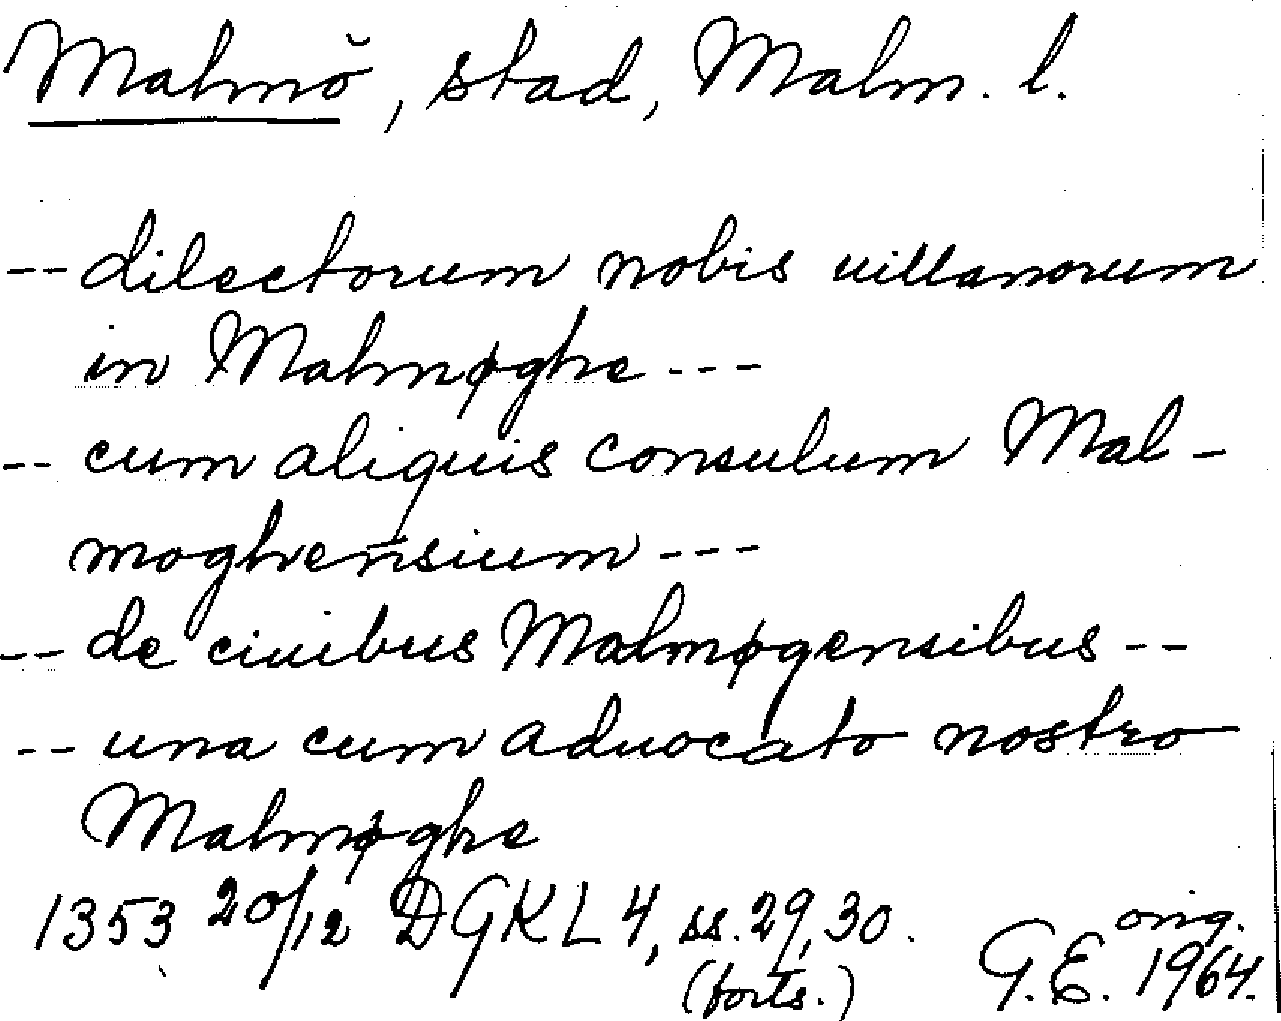 Malmö, stad, Malm. l.
-- dilectorum nobis uillanorum
in Malmøghe ---
-- cum aliquis consulum Mal-
moghensium ---
-- de ciuibus Malmøgensibus --
-- una cum aduocato nostro
Malmøghe
1353 20/12 DGKL 4, ss. 29, 30.
(forts.)
orig.
G.E. 1964.